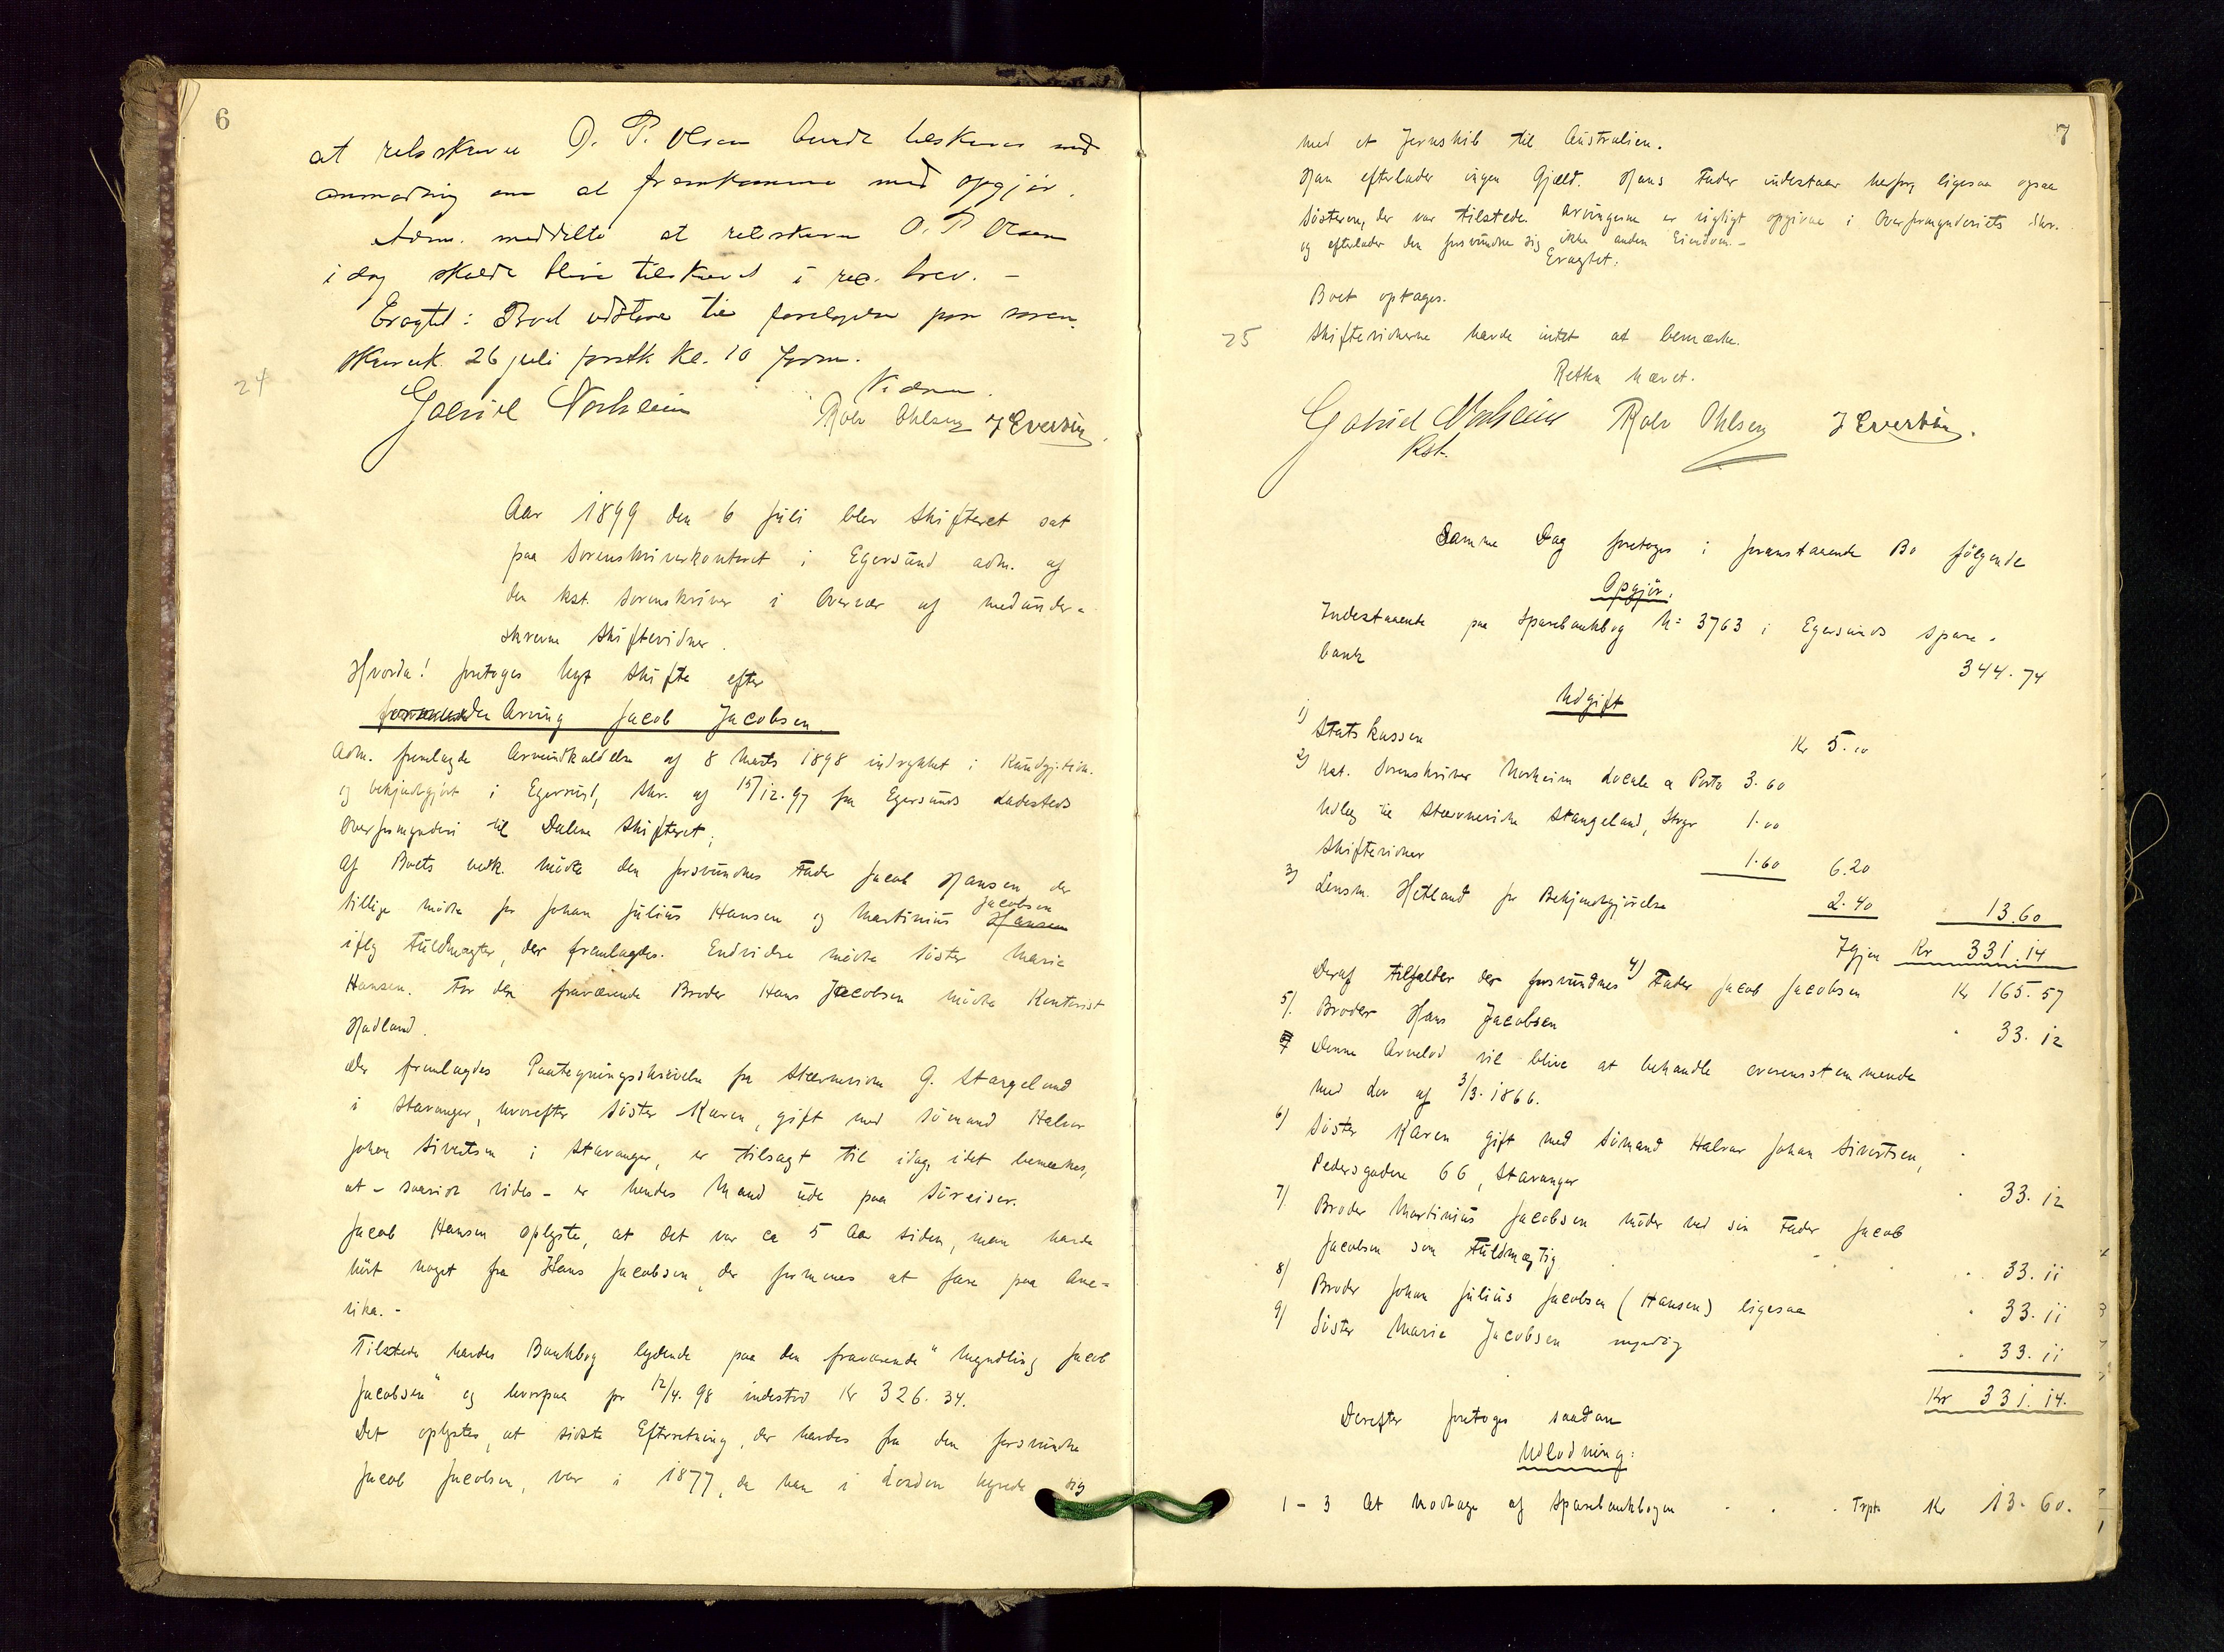 6
at retsskriver O. P. Olsen burde tilskrives med
anmodning om at fremkomme med opgjør.
Adm. meddelte at retsskriver O. P. Olsen
i dag skulde blive tilskrevet i rec. brev. –
Eragtet: Boet udstaar til foretagelse paa soren-
skriverk. 26 juli førstk kl. 10 Form.
24
Vidner.
Gabriel Norheim Rolv Ohlsen J Evertsen.
Aar 1899 den 6 Juli blev Skifteret sat
paa Sorenskriverkontoret i Egersund adm. af
den kst. Sorenskriver i Overvær af medunder-
skrevne Skiftevidner.
Hvorda! foretoges nyt Skifte efter
forsvundne Arving Jacob Jacobsen.
Adm. fremlagde Arveindkaldelse af 8 Marts 1898 indrykket i Kundgj.tid.
og bekjendtgjort i Egersund, Skr. af 15/12.97 fra Egersunds Ladesteds
Overformynderi til Dalene Skifteret;
Af Boets vedk. mødte den forsvundnes Fader Jacob Hansen, der
Jacobsen
tillige mødte for Johan Julius Hansen og Martinius Hansen
iflg Fuldmagter, der fremlagdes. Endvidere mødte Søster Marie
Hansen. For den fraværende Broder Hans Jacobsen mødte Kontorist
Hadland.
Der fremlagdes Paategningsskrivelse fra Stævnevidne G. Stangeland
i Stavanger, hvorefter Søster Karen, gift med Sømand Halvor
Johan Sivertsen i Stavanger, er tilsagt til idag, idet bemærkes,
at – saavidt vides – er hendes Mand ude paa Søreiser.
Jacob Hansen oplyste, at det var ca 5 Aar siden, man havde
hørt noget fra Hans Jacobsen, der formenes at fare paa Ame-
rika. –
Tilstede havdes Bankbog lydende paa den fraværende "Myndling Jacob
Jacobsen" og hvorpaa pr 12/4. 98 indestod Kr 326. 34.
Det oplystes, at sidste Efterretning, der havdes fra den forsvundne
Jacob Jacobsen, var i 1877, da han i London hyrede sig
7
med et Jernskib til Australien.
Han efterlader ingen Gjæld. Hans Fader indestaar herfor, ligesaa ogsaa
Søsteren, der var tilstede. Arvingerne er rigtigt opgivne i Overformynderiets Skr.
og efterlader den forsvundne sig ikke anden Eiendom. –
Eragtet:
Boet optages.
25 Skiftevidnerne havde intet at bemærke.
Retten hævet.
Gabriel Norheim Rolv Ohlsen J Evertsen.
Kst.
Samme Dag foretoges i foranstaaende Bo følgende
Opgjør.
Indestaaende paa Sparebankbog N= 3763 i Egersunds Spare-
bank 344. 74
Udgift
1) Statskassen Kr 5. 00
2) Kst. Sorenskriver Norheim Locale a Porto 3. 60
Udlæg til Stævnevidne Stangeland, Stvgr 1. 00
Skiftevidner 1. 60 6. 20
3) Lensm. Hetland for Bekjendtgjørelse 2. 40 13. 60
Igjen Kr 331. 14
Deraf tilfalder den forsvundnes 4) Fader Jacob Jacobsen Kr 165. 57
5). Broder Hans Jacobsen 33. 12
Denne Arvelod vil blive at behandle overensstemmende
med Lov af 3/3. 1866.
6) Søster Karen gift med Sømand Halvor Johan Sivertsen,
Pedersgaden 66, Stavanger 33. 12
7) Broder Martinius Jacobsen møder ved sin Fader Jacob
Jacobsen som Fuldmægtig 33. 11
8) Broder Johan Julius Jacobsen (Hansen) ligesaa 33. 11
9) Søster Marie Jacobsen myndig 33. 11
Kr 331. 14.
Derefter foretoges saadan
Udlodning:
1 – 3 At modtage af Sparebankbogen Trpt. Kr 13. 60.